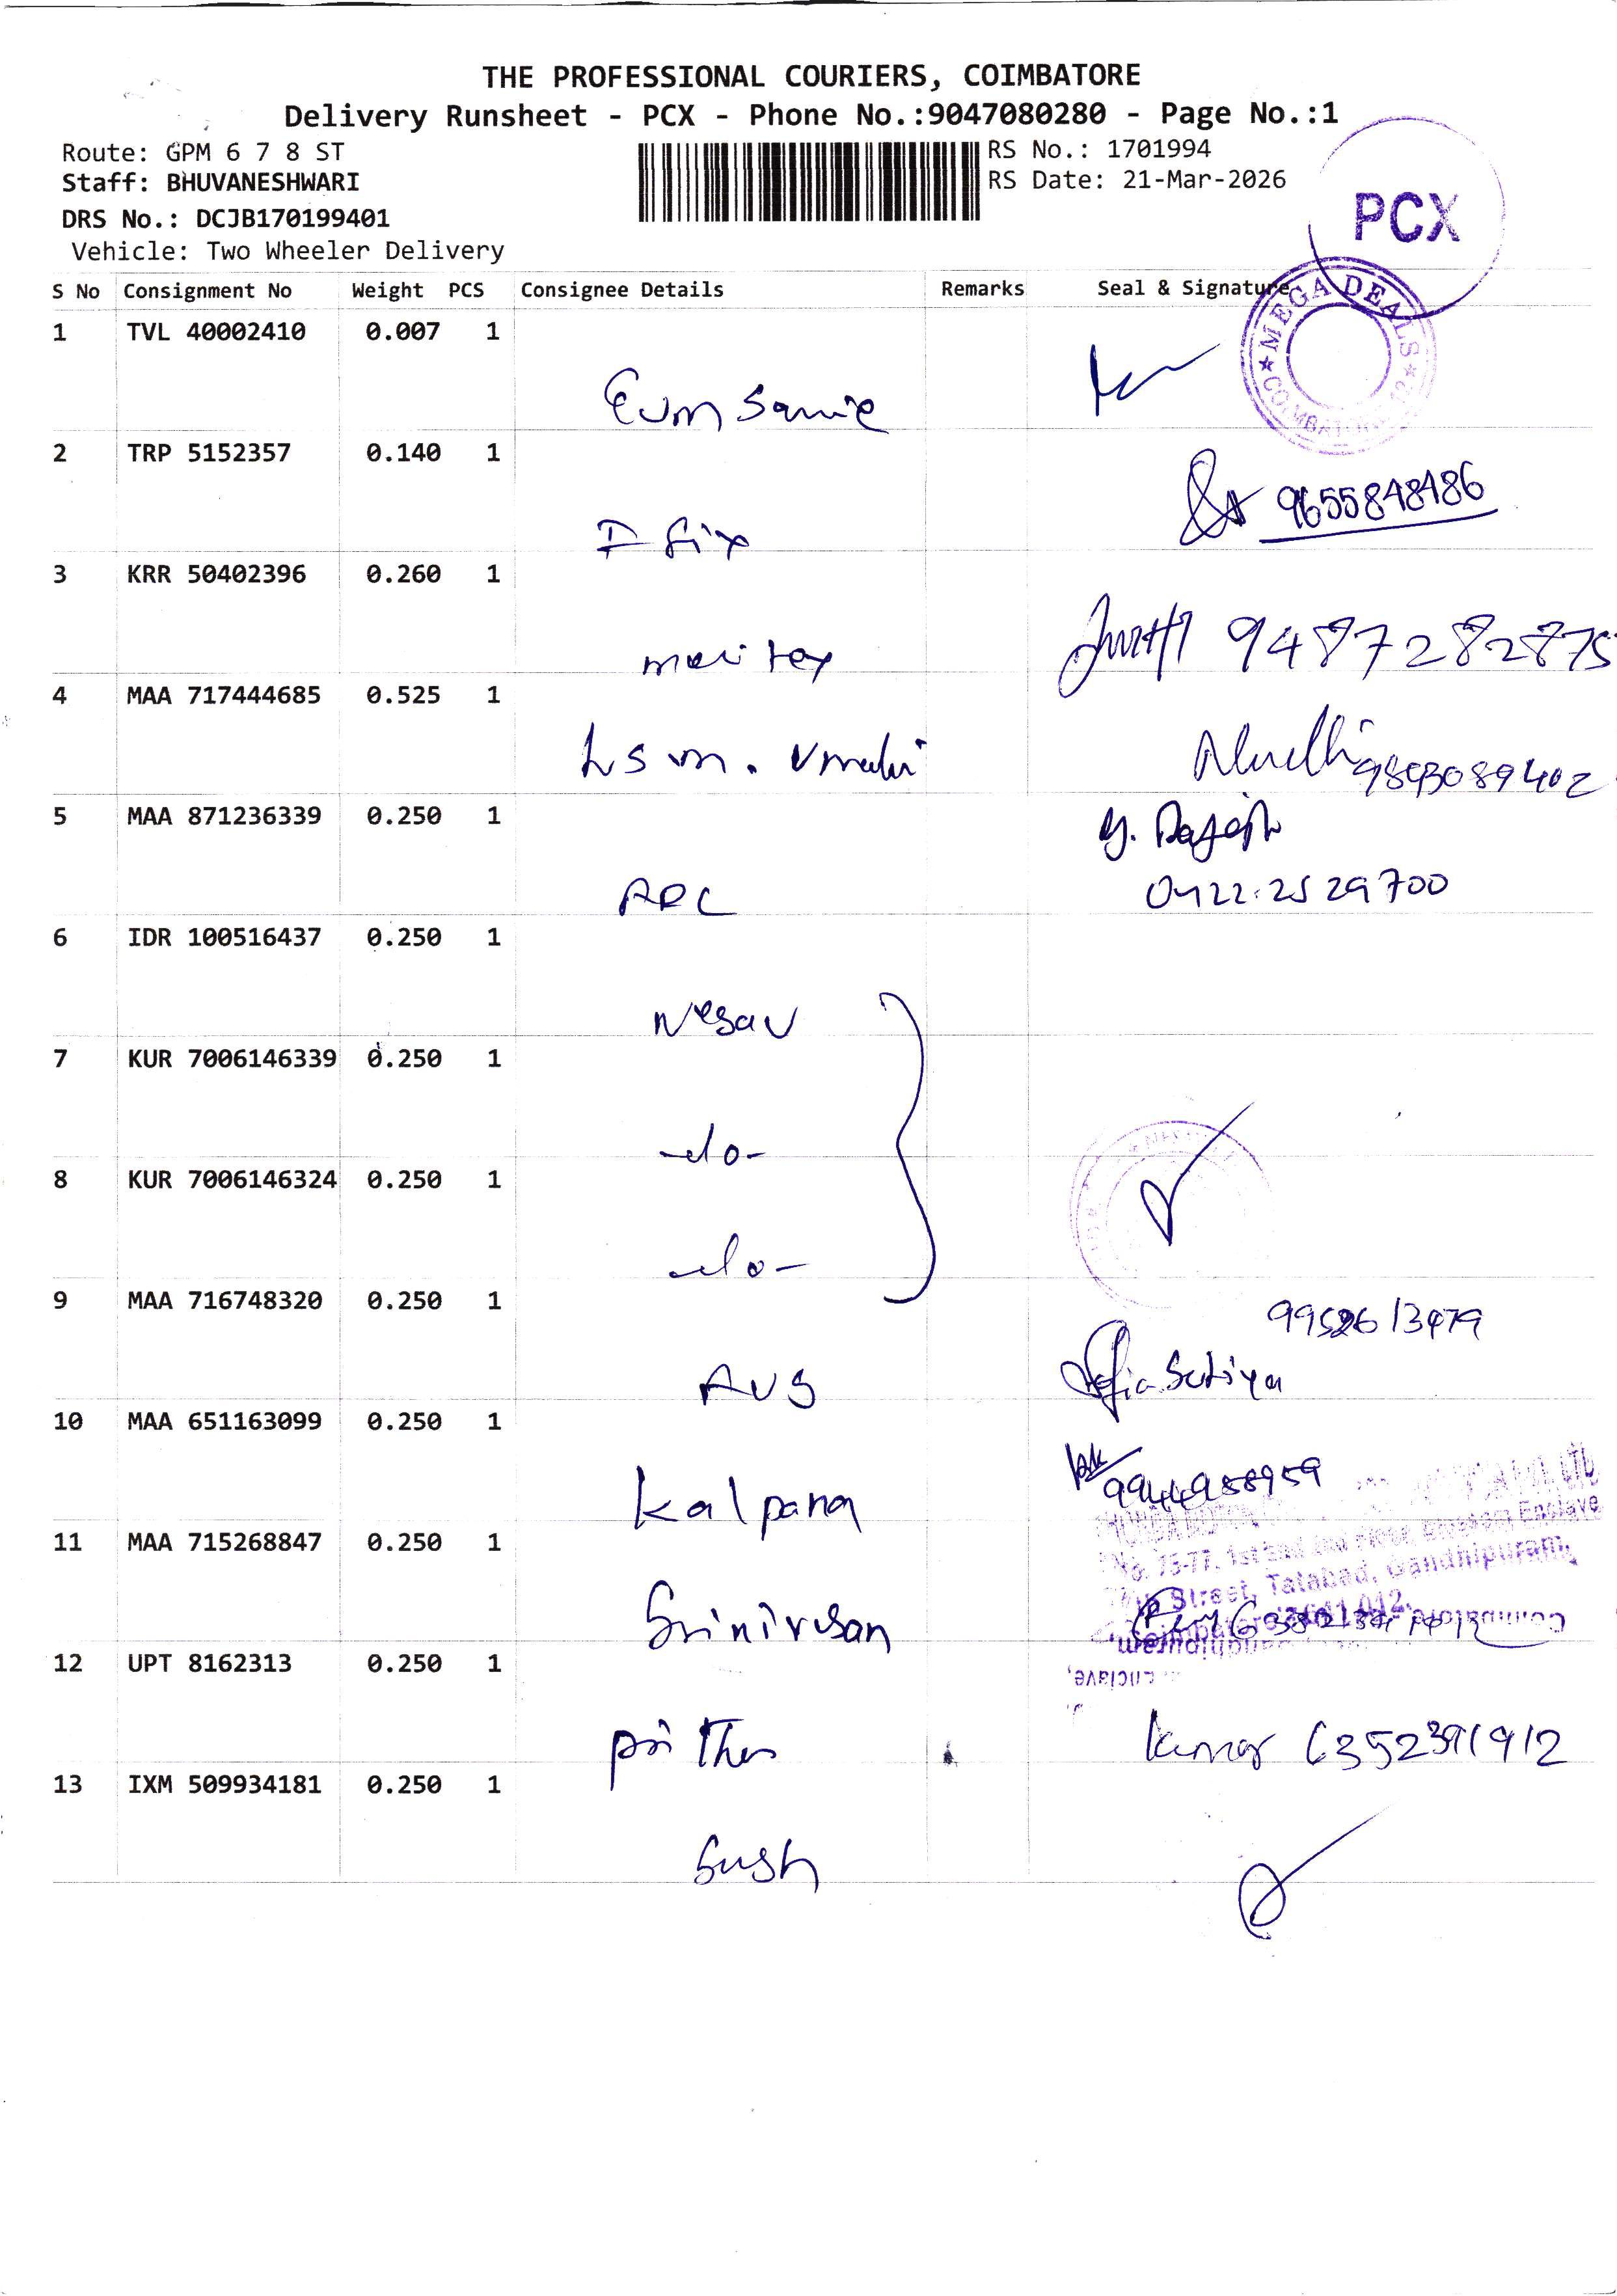 THE PROFESSIONAL COURIERS, COIMBATORE
Delivery Runsheet - PCX - Phone No.:9047080280 - Page No.:1
Route: GPM 6 7 8 ST
RS No.: 1701994
Staff: BHUVANESHWARI
RS Date: 21-Mar-2026
DRS No.: DCJB170199401
Vehicle: Two Wheeler Delivery
PCX
S No Consignment No Weight PCS Consignee Details Remarks Seal & Signature
MEGA DEALS
1 TVL 40002410 0.007 1
2 TRP 5152357 0.140 1
9655848486
I fix
3 KRR 50402396 0.260 1
9487282875
4 MAA 717444685 0.525 1
9843089402
5 MAA 871236339 0.250 1
Y. Rajesh
0422.2529700
6 IDR 100516437 0.250 1
Nesav
7 KUR 7006146339 0.250 1
-do-
8 KUR 7006146324 0.250 1
-do-
9 MAA 716748320 0.250 1
AVS
10 MAA 651163099 0.250 1
9944958959
Kalpana
11 MAA 715268847 0.250 1
Street, Tatabad, Gandhipuram,
Srinivasan
12 UPT 8162313 0.250 1
Kumar 6352391912
13 IXM 509934181 0.250 1
Sush